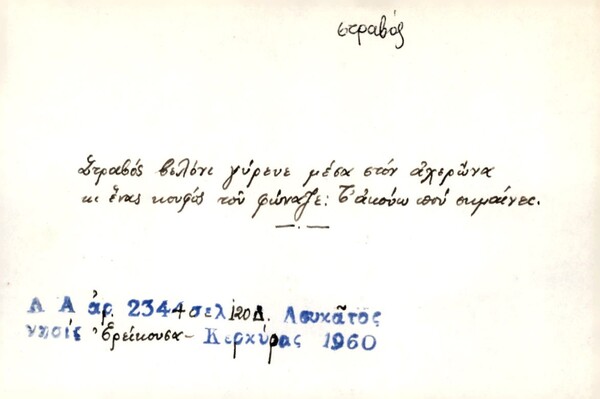 στραβός
Στραβός βελόνι γύρευε μέσα στόν ἀχερῶνα
κι ἕνας κουφός τοῦ φώναζε: Τ' ἀκούω πού σημαίνες.
Λ Α ἀρ. 2344 σελ 120 Δ. Λουκᾶτος
νησίς Ἐρείκουσα - Κερκύρας 1960